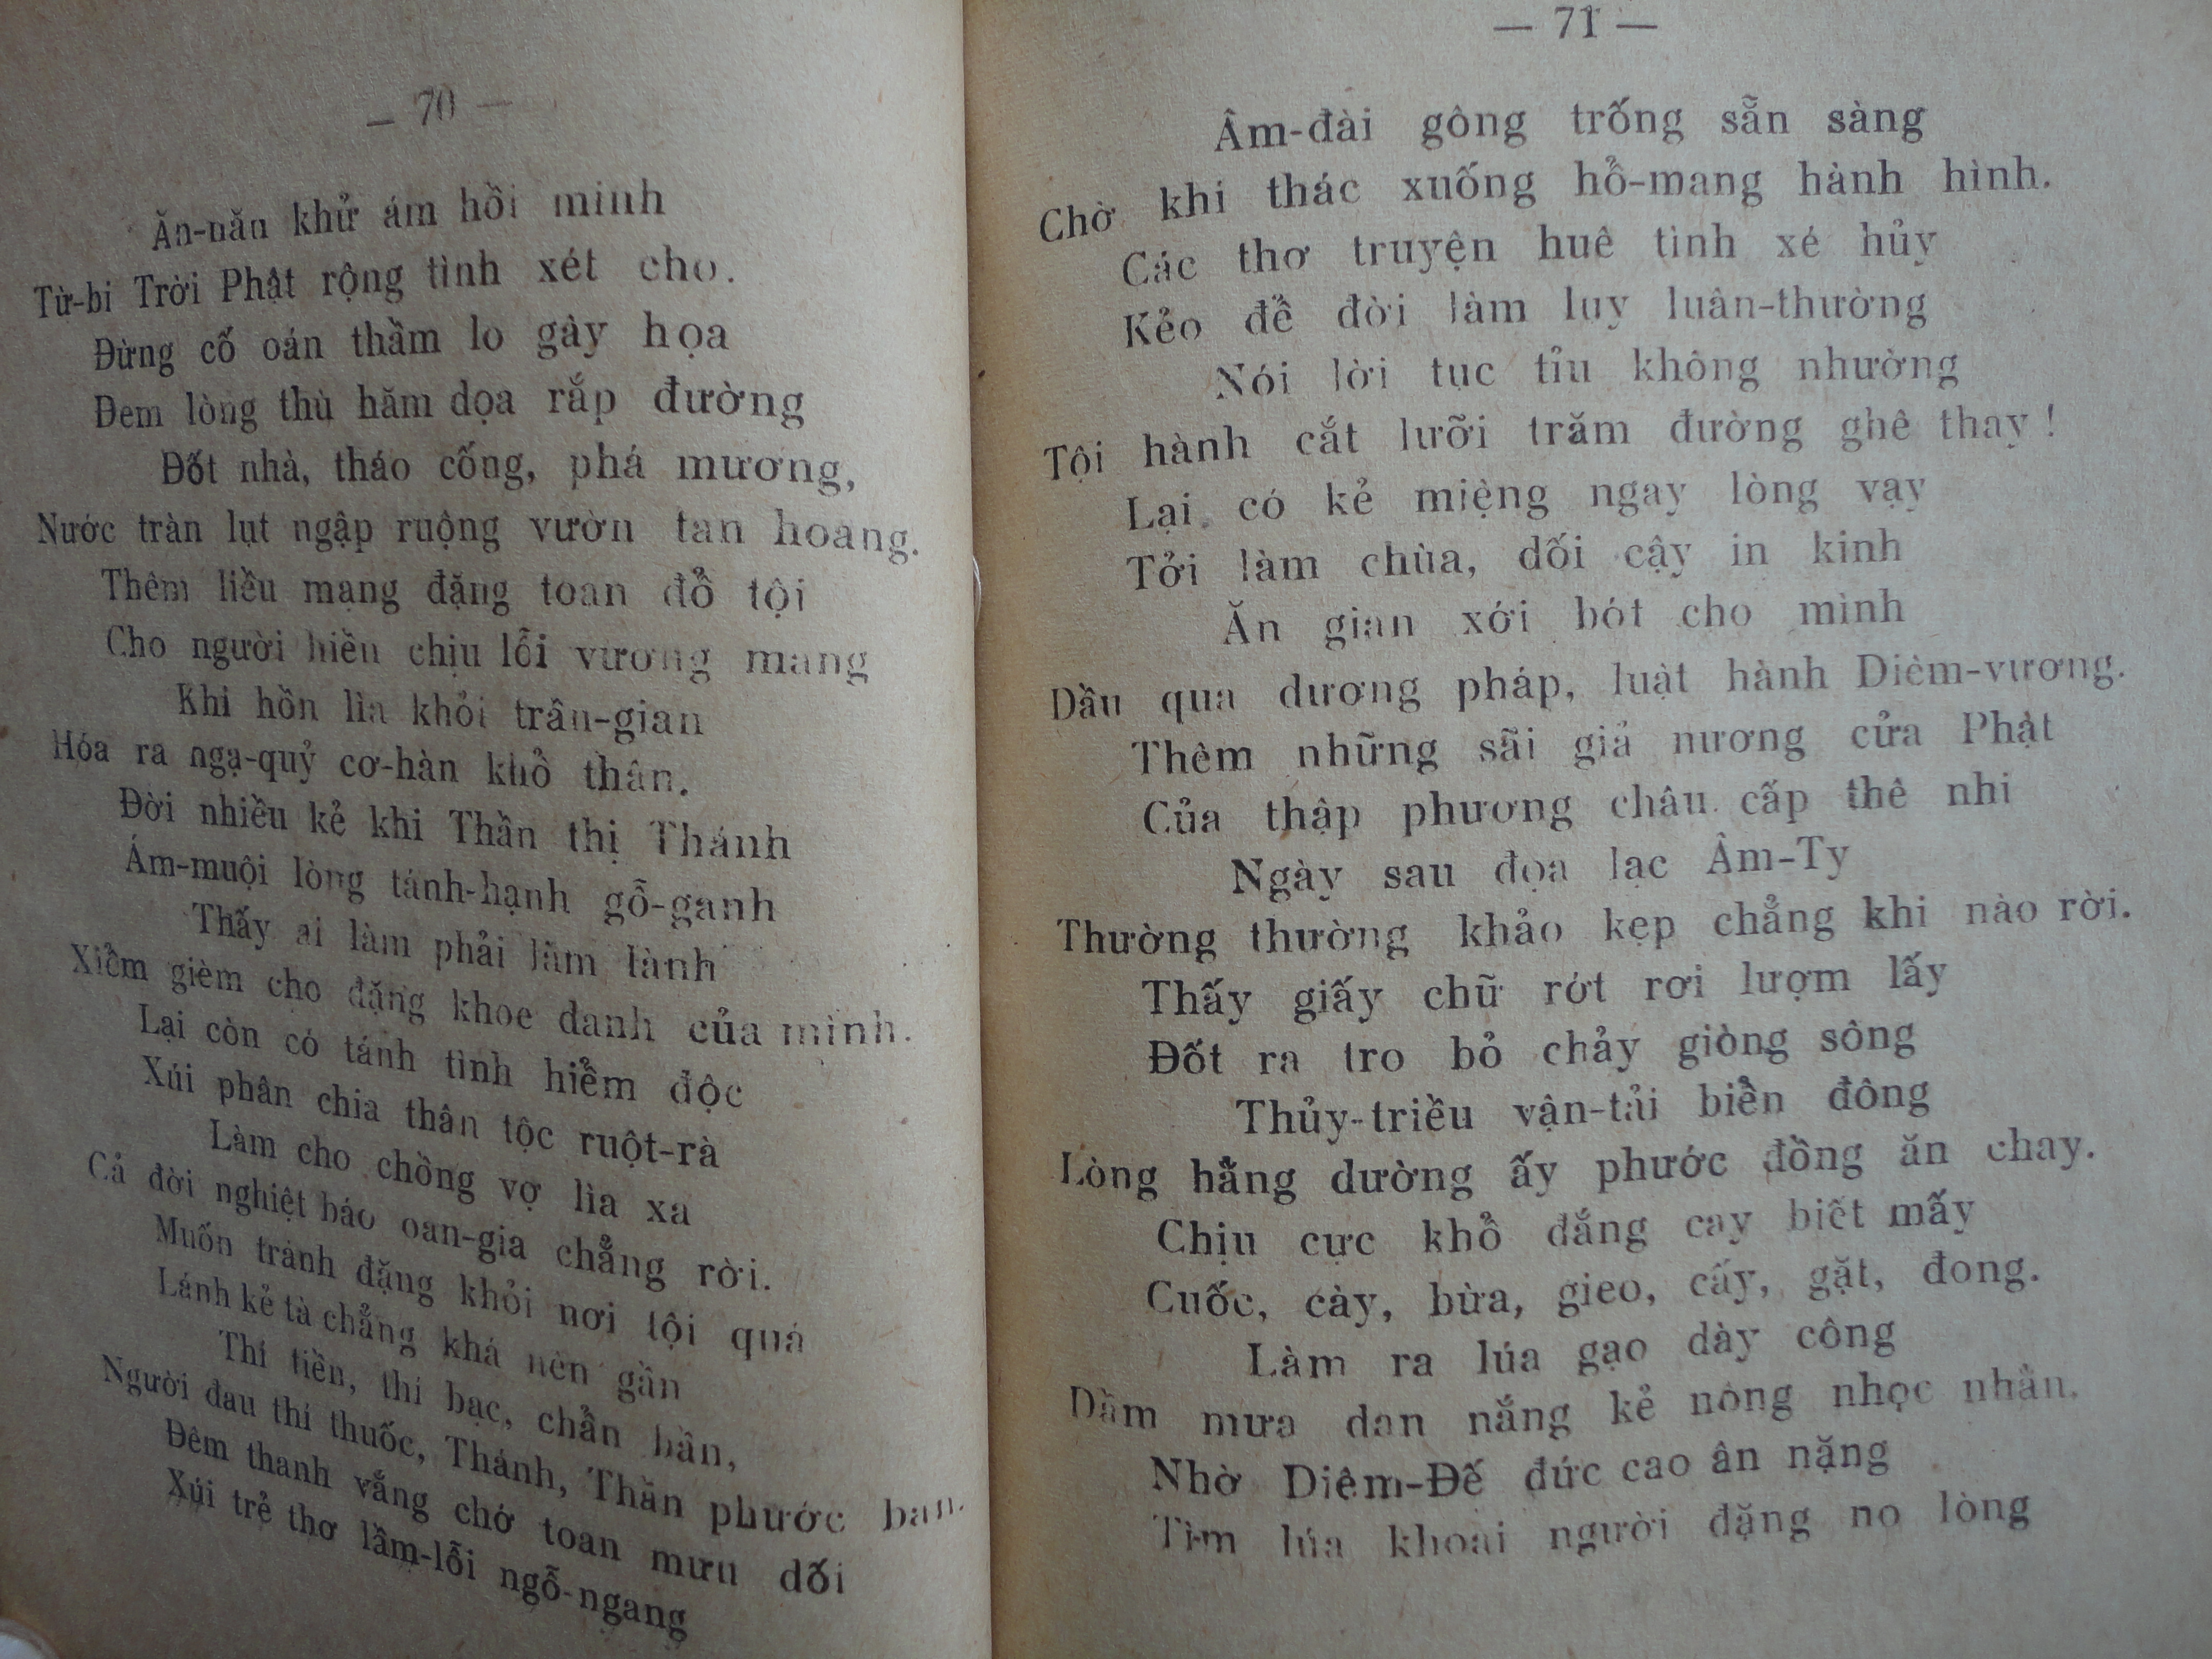 — 70 —
Ăn-năn khử ám hồi minh
Từ-bi Trời Phật rộng tình xét cho.
Đừng cố oán thầm lo gây họa
Đem lòng thù hăm dọa rắp đường
Đốt nhà, tháo cống, phá mương,
Nước tràn lụt ngập ruộng vườn tan hoang.
Thêm liều mạng đặng toan đổ tội
Cho người hiền chịu lỗi vương mang
Khi hồn lìa khỏi trần-gian
Hóa ra ngạ-quỷ cơ-hàn khổ thân.
Đời nhiều kẻ khi Thần thị Thánh
Ám-muội lòng tánh-hạnh gỗ-ganh
Thấy ai làm phải làm lành
Xiểm gièm cho đặng khoe danh của mình.
Lại còn có tánh tình hiểm độc
Xúi phân chia thân tộc ruột-rà
Làm cho chồng vợ lìa xa
Cả đời nghiệt báo oan-gia chẳng rời.
Muốn tránh đặng khỏi nơi tội quá
Lánh kẻ tà chẳng khá nên gần
Thí tiền, thí bạc, chẩn bần,
Người đau thí thuốc, Thánh, Thần phước ban.
Đêm thanh vắng chớ toan mưu dối
Xúi trẻ thơ lầm-lỗi ngỗ-ngang
— 71 —
Âm-đài gông trống sẵn sàng
Chờ khi thác xuống hổ-mang hành hình.
Các thơ truyện huê tình xé hủy
Kẻo để đời làm luy luân-thường
Nói lời tục tỉu không nhường
Tội hành cắt lưỡi trăm đường ghê thay !
Lại có kẻ miệng ngay lòng vạy
Tởi làm chùa, dối cậy in kinh
Ăn gian xới bớt cho mình
Dầu qua dương pháp, luật hành Diêm-vương.
Thêm những sãi giả nương cửa Phật
Của thập phương châu cấp thê nhi
Ngày sau đọa lạc Âm-Ty
Thường thường khảo kẹp chẳng khi nào rời.
Thấy giấy chữ rớt rơi lượm lấy
Đốt ra tro bỏ chảy giòng sông
Thủy-triều vận-tải biển đông
Lòng hằng dường ấy phước đồng ăn chay.
Chịu cực khổ đắng cay biết mấy
Cuốc, cày, bừa, gieo, cấy, gặt, đong.
Làm ra lúa gạo dày công
Dầm mưa dan nắng kẻ nông nhọc nhằn.
Nhờ Diêm-Đế đức cao ân nặng
Tìm lúa khoai người đặng no lòng